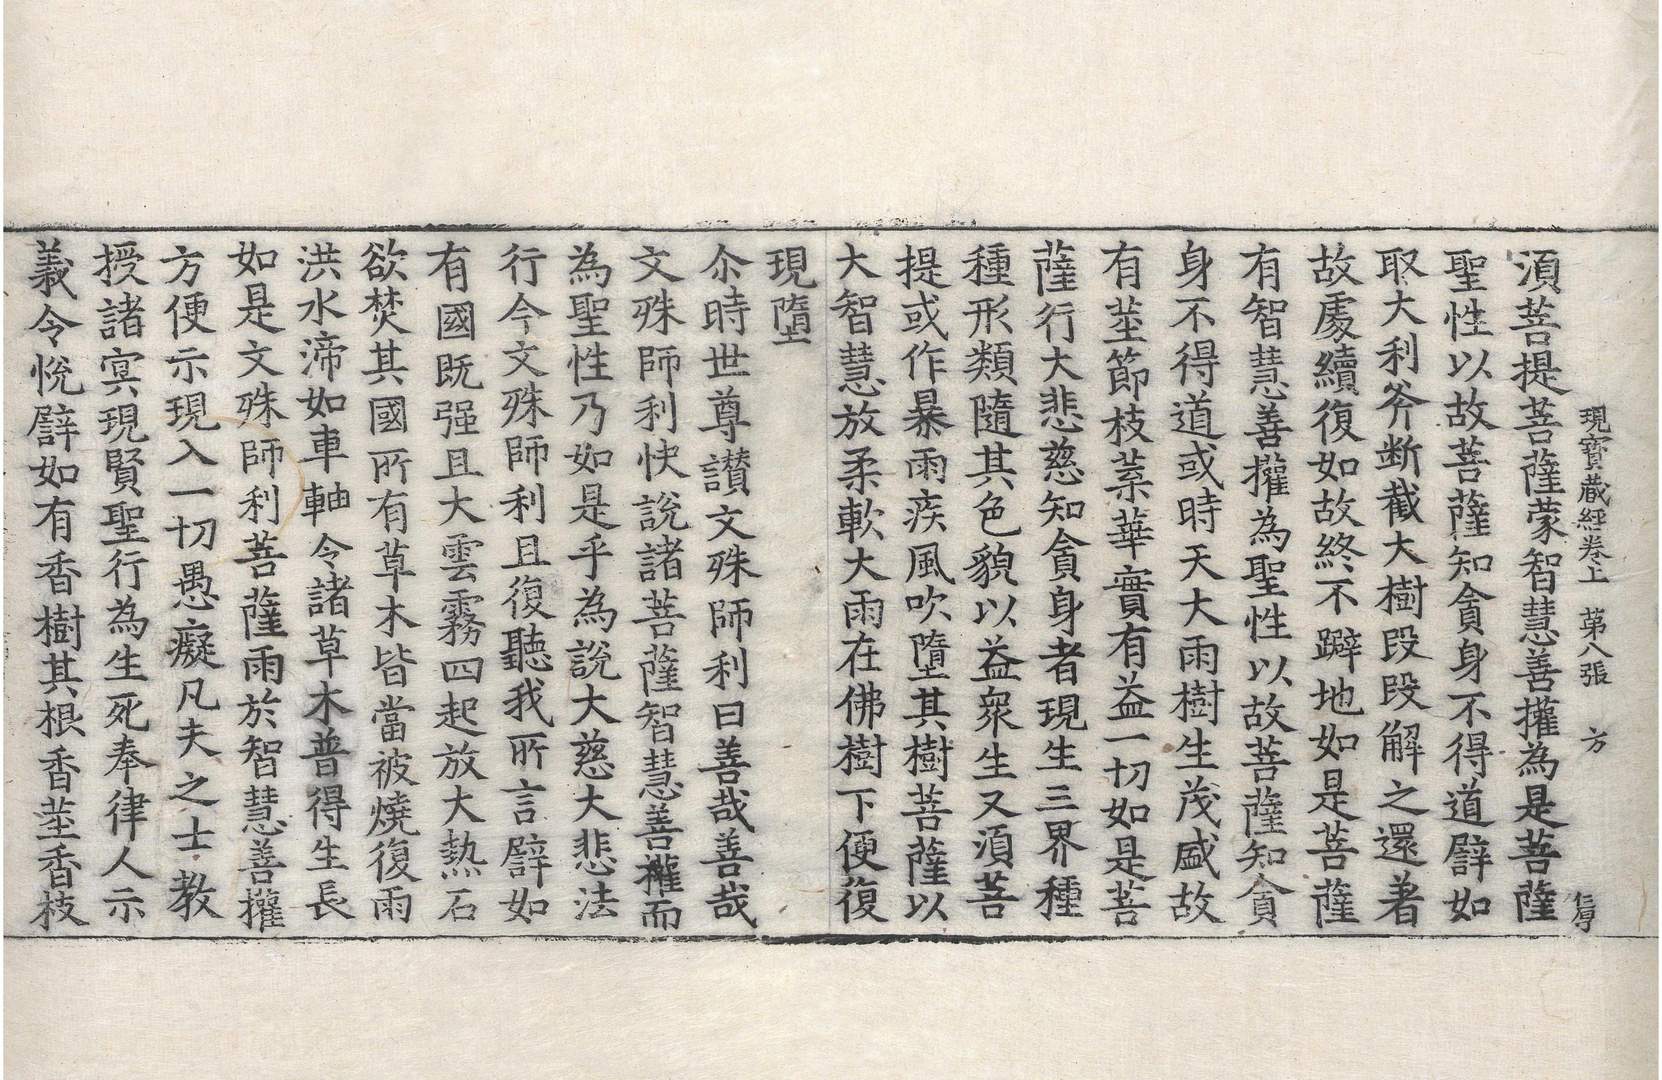 現寶藏經卷上　第八張　方　仁厚
湏菩提菩薩蒙智慧善權為是菩薩
聖性以故菩薩知貪身不得道譬如
取大利斧斷截大樹段段解之還著
故處續復如故終不躃地如是菩薩
有智慧善權為聖性以故菩薩知貪
身不得道或時天大雨樹生茂盛故
有莖節枝葉華實有益一切如是菩
薩行大悲慈知貪身者現生三界種
種形類隨其色貌以益衆生又湏菩
提或作暴雨疾風吹墮其樹菩薩以
大智慧放柔軟大雨在佛樹下便復
現墮
尒時世尊讃文殊師利曰善哉善哉
文殊師利快說諸菩薩智慧善權而
為聖性乃如是乎為說大慈大悲法
行今文殊師利且復聽我所言譬如
有國既强且大雲霧四起放大熱石
欲焚其國所有草木皆當被燒復雨
洪水渧如車軸令諸草木普得生長
如是文殊師利菩薩雨於智慧善權
方便示現入一切愚癡凡夫之士教
授諸冥現賢聖行為生死奉律人示
義令悅譬如有香樹其根香莖香枝